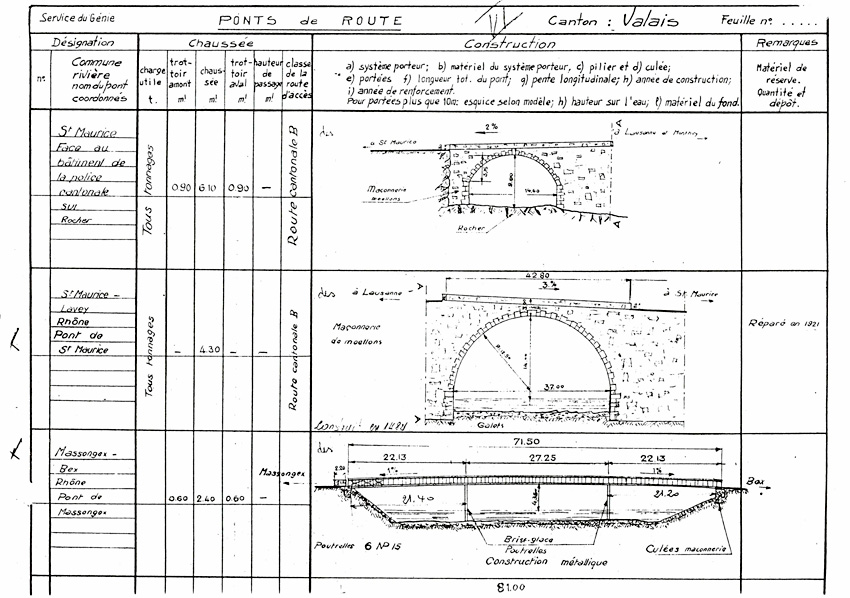 Service du Génie
PONTS de ROUTE
IV
Canton : Valais
Feuille nº .....
Désignation
Chaussée
Construction
Remarques
nº.
Commune
rivière
nom du pont
coordonnés
charge
utile
t.
trot-
toir
amont
m!
chaus-
sée
m!
trot-
toir
aval
m!
hauteur
de
passage
m!
classe
de la
route
d'accès
a) système porteur; b) matériel du système porteur, c) pilier et d) culée;
e) portées f) longueur tot. du pont; g) pente longitudinale; h) année de construction;
i) année de renforcement.
Pour portées plus que 10m: esquice selon modèle; h) hauteur sur l'eau; t) matériel du fond.
Matériel de
réserve.
Quantité et
dépôt.
St Maurice
Face au
bâtiment de
la police
cantonale
sur
Rocher
Tous tonnages
0.90
6.10
0.90
–
Route cantonale B
des
2%
à St Maurice
à Lausanne et Monthey
Maçonnerie
moellons
14.60
Rocher
St Maurice –
Lavey
Rhône
Pont de
St Maurice
Tous tonnages
–
4.30
–
–
Route cantonale B
des
à Lausanne
42.80
3%
à St Maurice
Maçonnerie
de moellons
37.00
Galets
Réparé en 1921
Massongex –
Bex
Rhône
Pont de
Massongex
0.60
2.40
0.60
–
Massongex
des
71.50
22.13
27.25
22.13
1%
1%
Bex
21.40
21.20
Brise-glace
Poutrelles
Poutrelles 6 Nº 15
Culées maçonnerie
Construction métallique
81.00